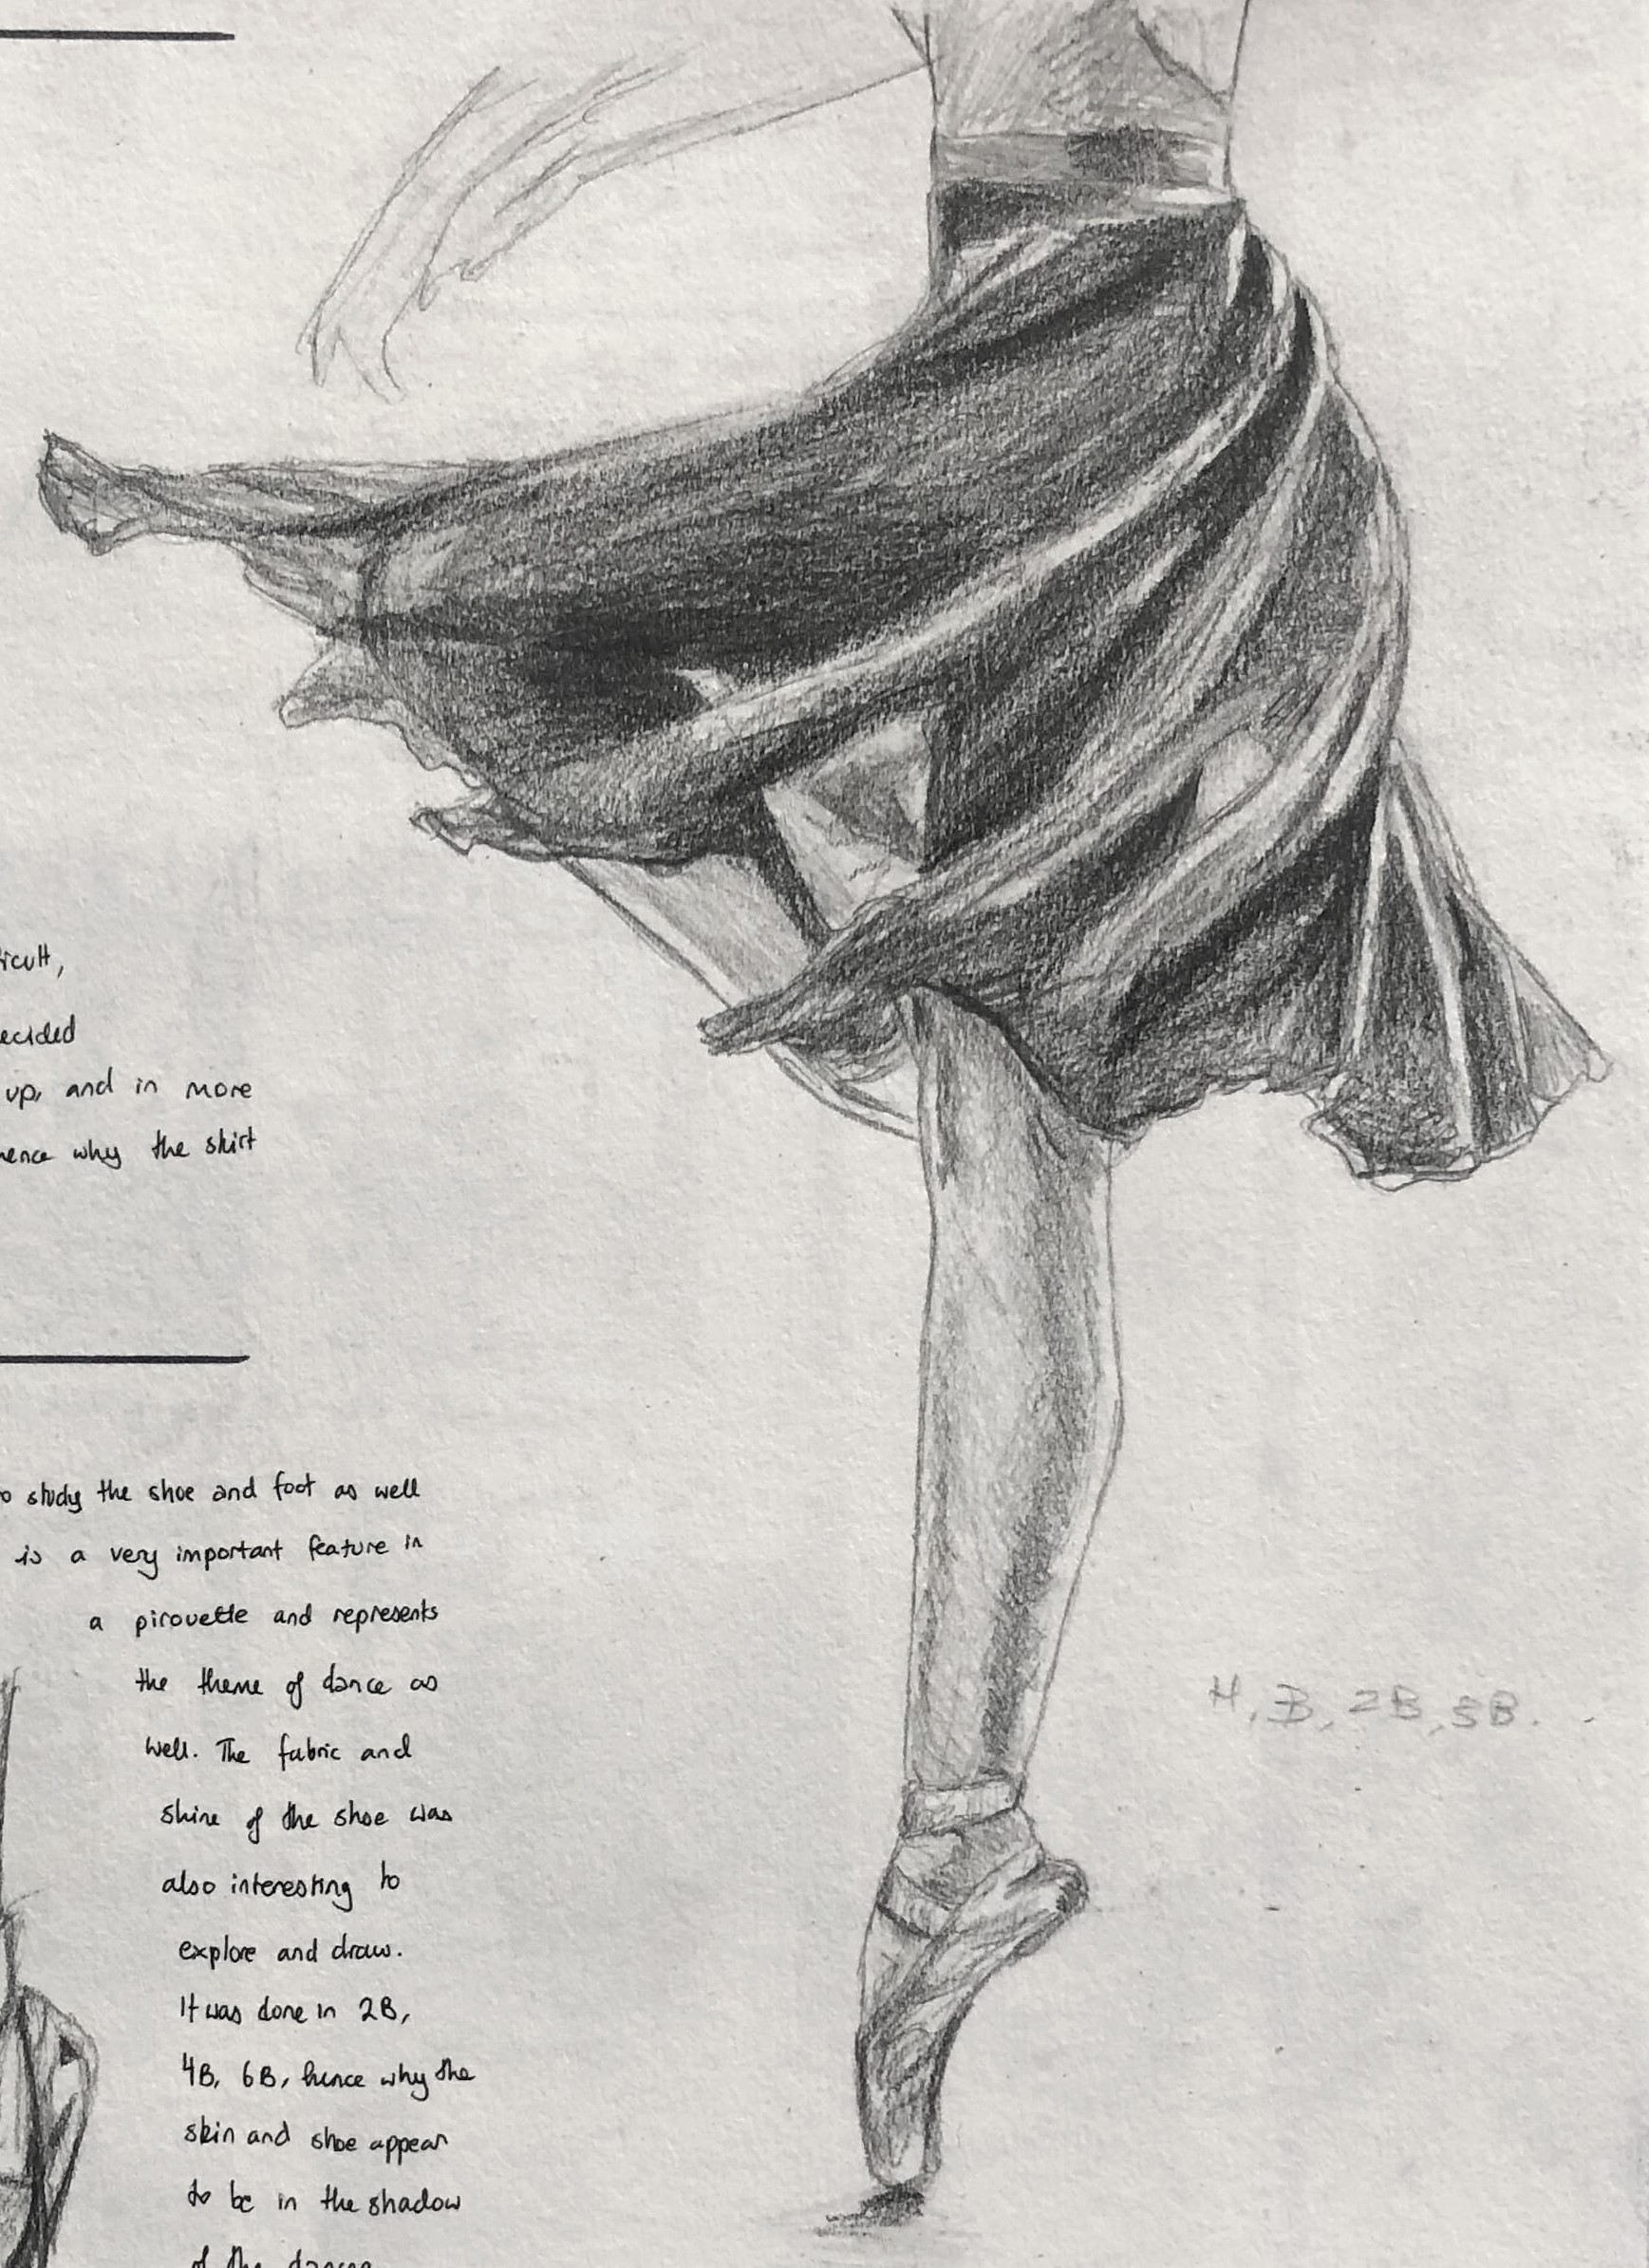 icult,
ecided
up, and in more
hence why the skirt
to study the shoe and foot as well
is a very important feature in
a pirouette and represents
the theme of dance as
well. The fabric and
shine of the shoe was
also interesting to
explore and draw.
It was done in 2B,
4B, 6B, hence why the
skin and shoe appear
to be in the shadow
of the dancer
H, B, 2B, 5B.